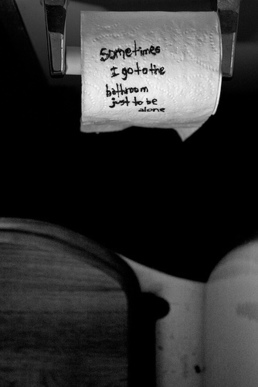 Sometimes
I go to the
bathroom
just to be
alone